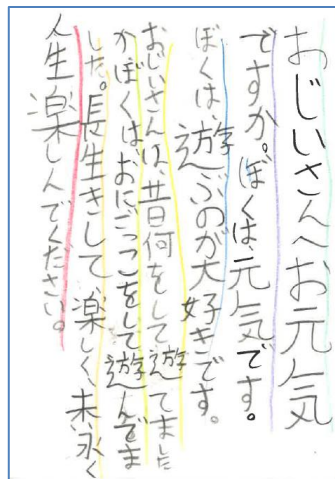 おじいさんへお元気
ですか。ぼくは、元気です。
ぼくは、遊ぶのが大好きです。
おじいさんは、昔何をして遊てました
かぼくはおにごっこをして遊んでま
した。長生きして、楽しく、未永く
人生楽しんでください。